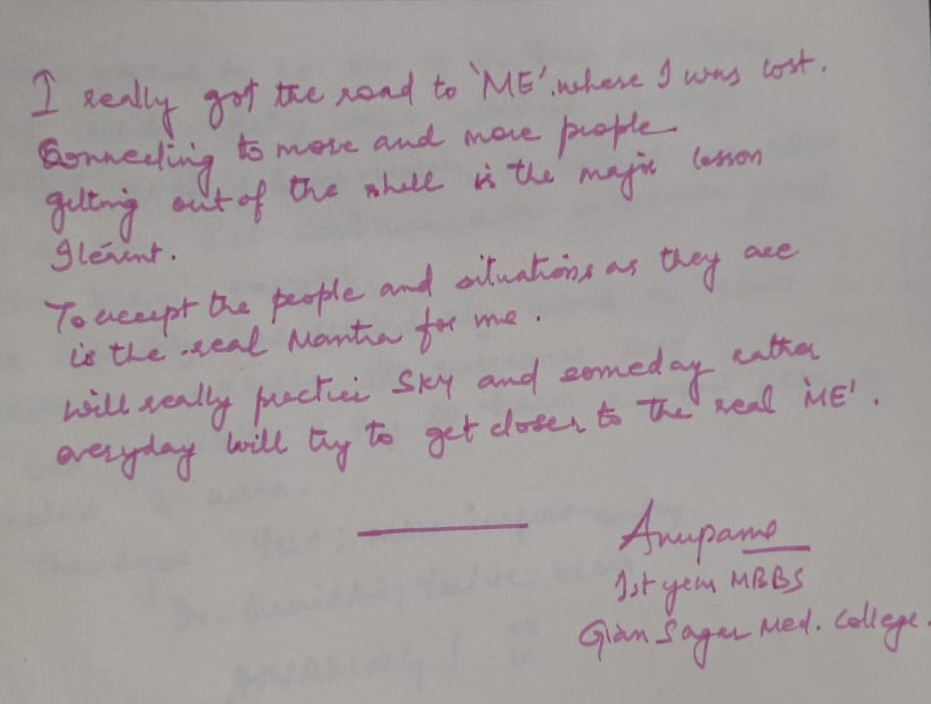 I really got the road to 'ME'. where I was lost.
Connecting to more and more people
getting out of the shell is the major lesson
I learnt.
To accept the people and situations as they are
is the real Mantra for me.
will really practice SKY and someday rather
everyday will try to get closer to the real 'ME'.
Anupame
1st year MBBS
Gian Sagar Med. College.